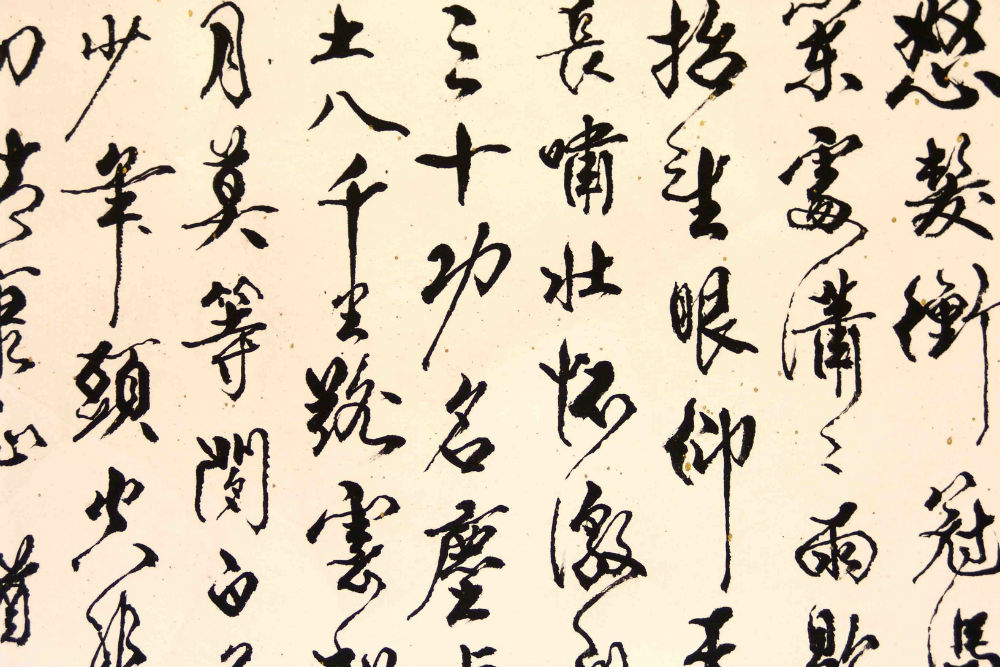 怒髮衝冠憑
處瀟〻雨歇
抬望眼仰天
長嘯壯懷激烈
三十功名塵與
土八千里路雲和
月莫等閒白了
少年頭空悲
切靖康恥猶